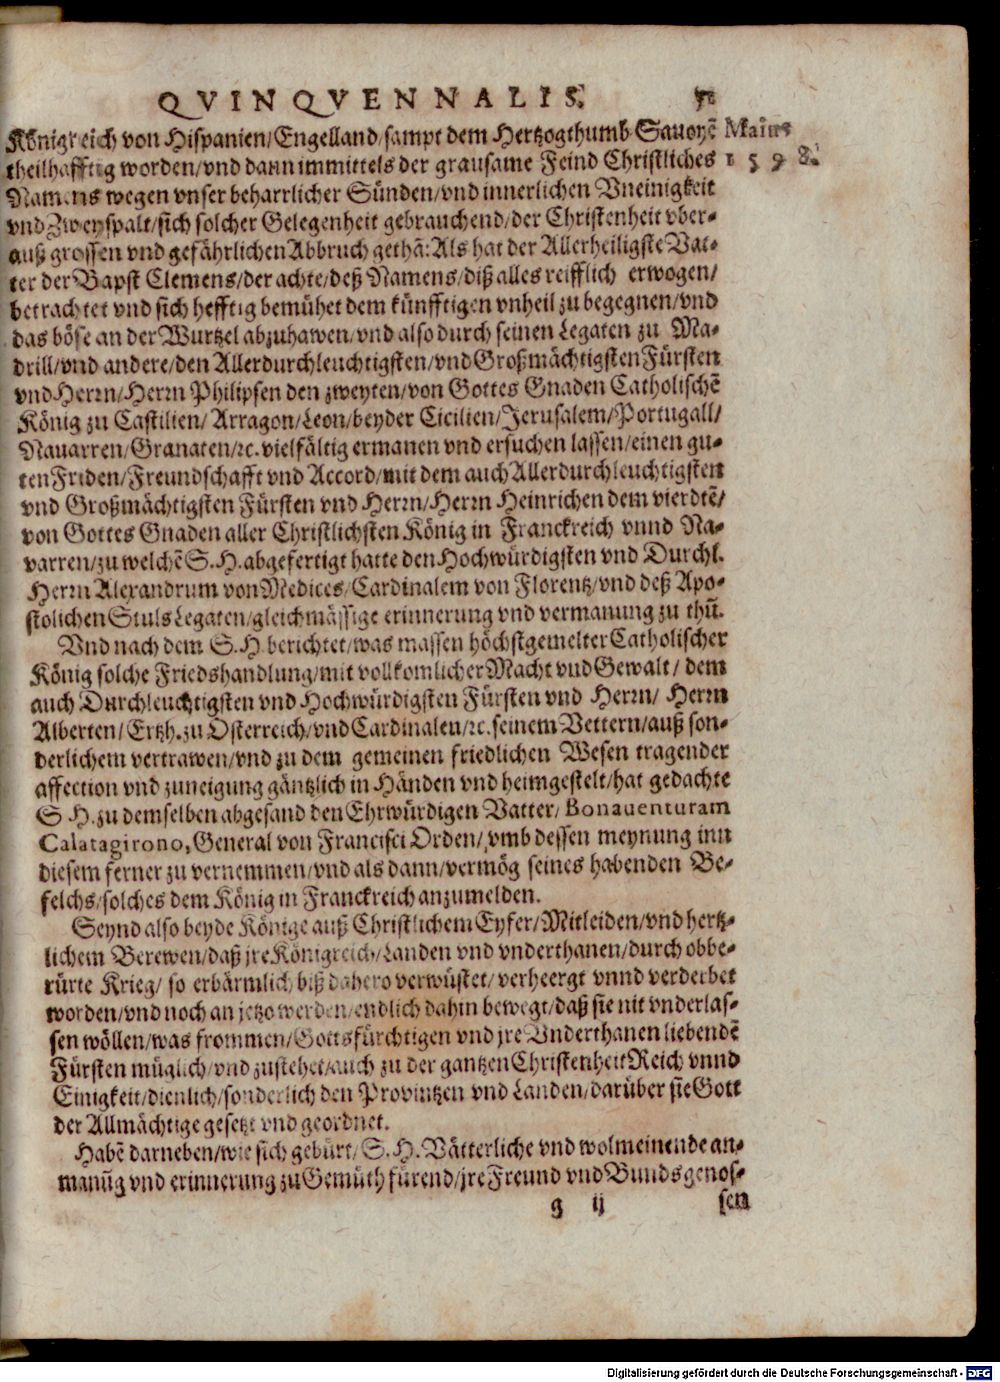 QVINQVENNALIS.
Königreich von Hispanien/Engelland/sampt dem Hertzogthumb Sauoyẽ
Maius
theilhafftig worden/vnd dann immittels der grausame Feind Christliches
1598.
Namens wegen vnser beharrlicher Sünden/vnd innerlichen Vneinigkeit
vnd Zweyspalt/sich solcher Gelegenheit gebrauchend/der Christenheit vber-
auß grossen vnd gefährlichen Abbruch gethã: Als hat der Allerheiligste Vat-
ter der Bapst Clemens/der achte/deß Namens/diß alles reifflich erwogen/
betrachtet vnd sich hefftig bemühet dem künfftigen vnheil zu begegnen/vnd
das böse an der Wurtzel abzuhawen/vnd also durch seinen Legaten zu Ma-
drill/vnd andere/den Allerdurchleuchtigsten/vnd Großmächtigsten Fürsten
vnd Herrn/Herrn Philipsen den zweyten/von Gottes Gnaden Catholischẽ
König zu Castilien/Arragon/Leon/beyder Cicilien/Jerusalem/Portugall/
Nauarren/Granaten/ꝛc. vielfältig ermanen vnd ersuchen lassen/einen gu-
ten Friden/Freundschafft vnd Accord/mit dem auch Allerdurchleuchtigsten
vnd Großmächtigsten Fürsten vnd Herrn/Herrn Heinrichen dem vierdtẽ/
von Gottes Gnaden aller Christlichsten König in Franckreich vnnd Na-
varren/zu welchẽ S.H. abgefertigt hatte den Hochwürdigsten vnd Durchl.
Herrn Alexandrum von Medices/Cardinalem von Florentz/vnd deß Apo-
stolichen Stuls Legaten/gleichmässige erinnerung vnd vermanung zu thũ.
Vnd nach dem S.H. berichtet/was massen höchstgemelter Catholischer
König solche Friedshandlung/mit vollkomlicher Macht vnd Gewalt/dem
auch Durchleuchtigsten vnd Hochwürdigsten Fürsten vnd Herrn/Herrn
Alberten/Ertzh. zu Osterreich/vnd Cardinalen/ꝛc. seinem Vettern/auß son-
derlichem vertrawen/vnd zu dem gemeinen friedlichen Wesen tragender
affection vnd zuneigung gäntzlich in Händen vnd heimgestelt/hat gedachte
S H. zu demselben abgesand den Ehrwürdigen Vatter/Bonauenturam
Calatagirono, General von Francisci Orden/vmb dessen meynung inn
diesem ferner zu vernemmen/vnd als dann/vermög seines habenden Be-
felchs/solches dem König in Franckreich anzumelden.
Seynd also beyde Könige auß Christlichem Eyfer/Mitleiden/vnd hertz-
lichem Berewen/daß jre Königreich/Landen vnd vnderthanen/durch obbe-
rürte Krieg/so erbärmlich biß dahero verwüstet/verheergt vnnd verderbet
worden/vnd noch an jetzo werden/endlich dahin bewegt/daß sie nit vnderlas-
sen wöllen/was frommen/Gottsfürchtigen vnd jre Vnderthanen liebendẽ
Fürsten müglich/vnd zustehet/auch zu der gantzen Christenheit Reich vnnd
Einigkeit/dienlich/sonderlich den Provintzen vnd Landen/darüber sie Gott
der Allmächtige gesetzt vnd geordnet.
Habẽ darneben/wie sich gebürt/S.H. Vätterliche vnd wolmeinende an-
manũg vnd erinnerung zu Gemüth fürend/jre Freund vnd Bundsgenos-
g ij
sen
Digitalisierung gefördert durch die Deutsche Forschungsgemeinschaft - DFG